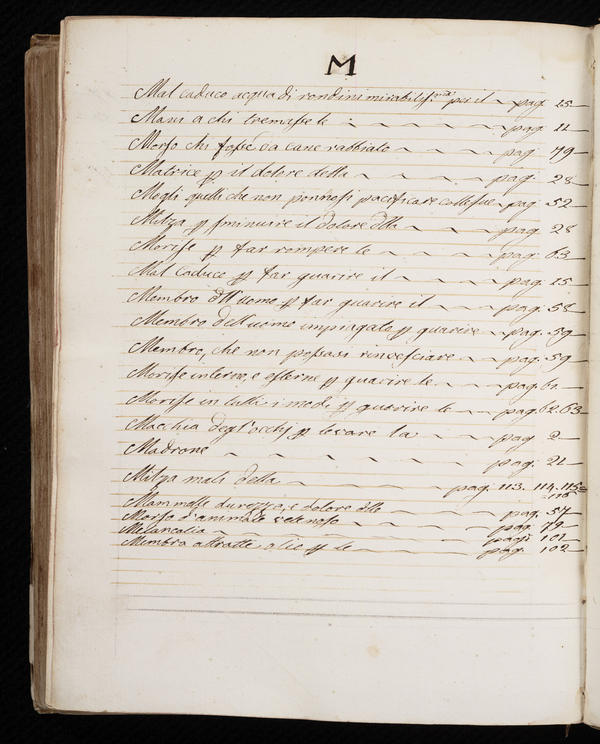 M
Mal caduco acqua di rondini mirabiliss.ma per il pag. 15
Mani a chi tremasse le pag. 11
Morso chi fosse da cane rabbiato pag. 79
Matrice p il dolore della pag. 28
Mogli quelli che non ponnosi pacificare coll pag. 52
Milza p sminuire il dolore dlla pag. 28
Morise p far rompere le pag. 63
Mal caduco p far guarire il pag. 15
Membro dll uomo p far guarire il pag. 58
Membro dell uomo impiagato p guarire pag. 59
Membro, che non possasi pag. 59
Morise interne, e esterne p guarire le pag. 61
Morise in tutti i modi p guarire le pag. 62. 63
Macchia degl'occhj p levare la pag. 2
Madrone pag. 21
Milza mali della pag. 113. 114. 115
116
Mammelle durezza, e dolore dlle pag. 57
Morso d'animale velenoso pag. 79
Melancolia pag. 101
Membra attratte olio p le pag. 102